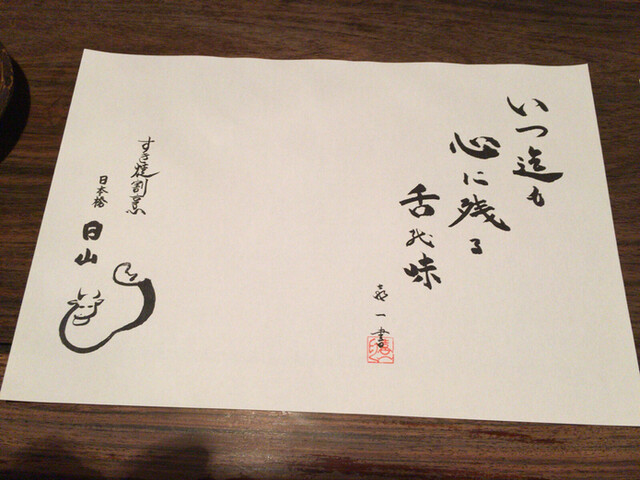 いつ迄も
心に残る
舌の味
喜一書
すき焼割烹
日本橋
日山